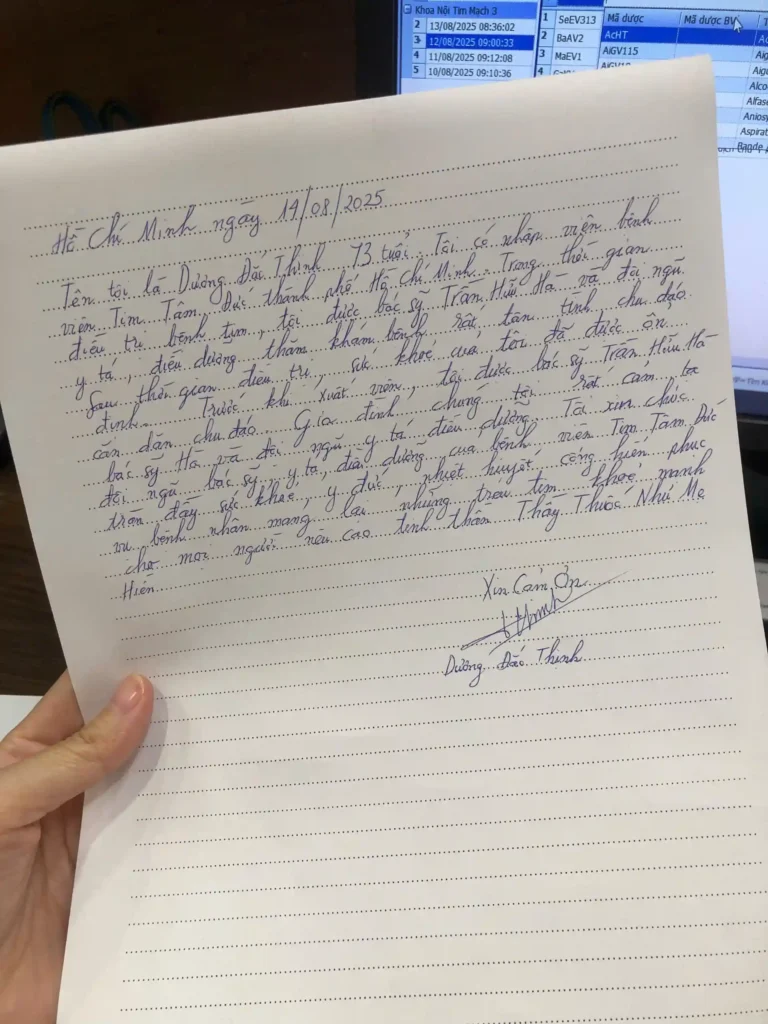 Khoa Nội Tim Mạch 3
2 13/08/2025 08:36:02
3 12/08/2025 09:00:33
4 11/08/2025 09:12:08
5 10/08/2025 09:10:36
1 SeEV313
2 BaAV2
3 MaEV1
4
Mã dược Mã dược BV T
AcHT Ac
AiGV115 Aig
Aig
Alco
Alfase
Aniosy
Aspirat
Bande
Hồ Chí Minh ngày 14/08/2025
Tên tôi là Dương Đắc Thịnh 73 tuổi. Tôi có nhập viện bệnh
viện Tim Tâm Đức thành phố Hồ Chí Minh. Trong thời gian
điều trị bệnh tim, tôi được bác sỹ Trần Hữu Hà và đội ngũ
y tá, điều dưỡng thăm khám bệnh rất tân tình, chu đáo.
Sau thời gian điều trị, sức khoẻ của tôi đã được ổn
định. Trước khi xuất viện, tôi được bác sỹ Trần Hữu Hà
căn dặn chu đáo. Gia đình chúng tôi rất cảm tạ
bác sỹ Hà và đội ngũ y tá điều dưỡng. Tôi xin chúc
đội ngũ bác sỹ, y tá, điều dưỡng của bệnh viện Tim Tâm Đức
tràn đầy sức khoẻ, y đức, nhiệt huyết, cống hiến phục
vụ bệnh nhân mang lại những trái tim khoẻ mạnh
cho mọi người nêu cao tinh thần Thầy Thuốc Như Mẹ
Hiền.
Xin Cảm Ơn
Thinh
Dương Đắc Thịnh